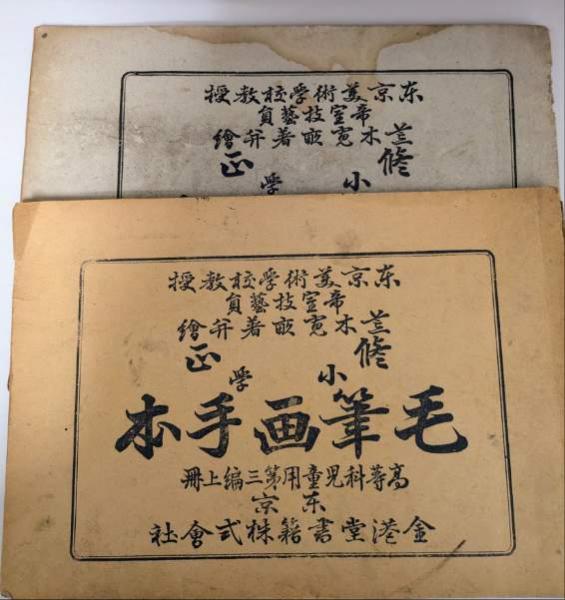 東京美術學校教授
帝室技藝員
荒木寛畝著并繪
修正
小學
東京美術學校教授
帝室技藝員
荒木寛畝著并繪
修正
小學
毛筆画手本
高等科児童用第三編上冊
東京
金港堂書籍株式會社